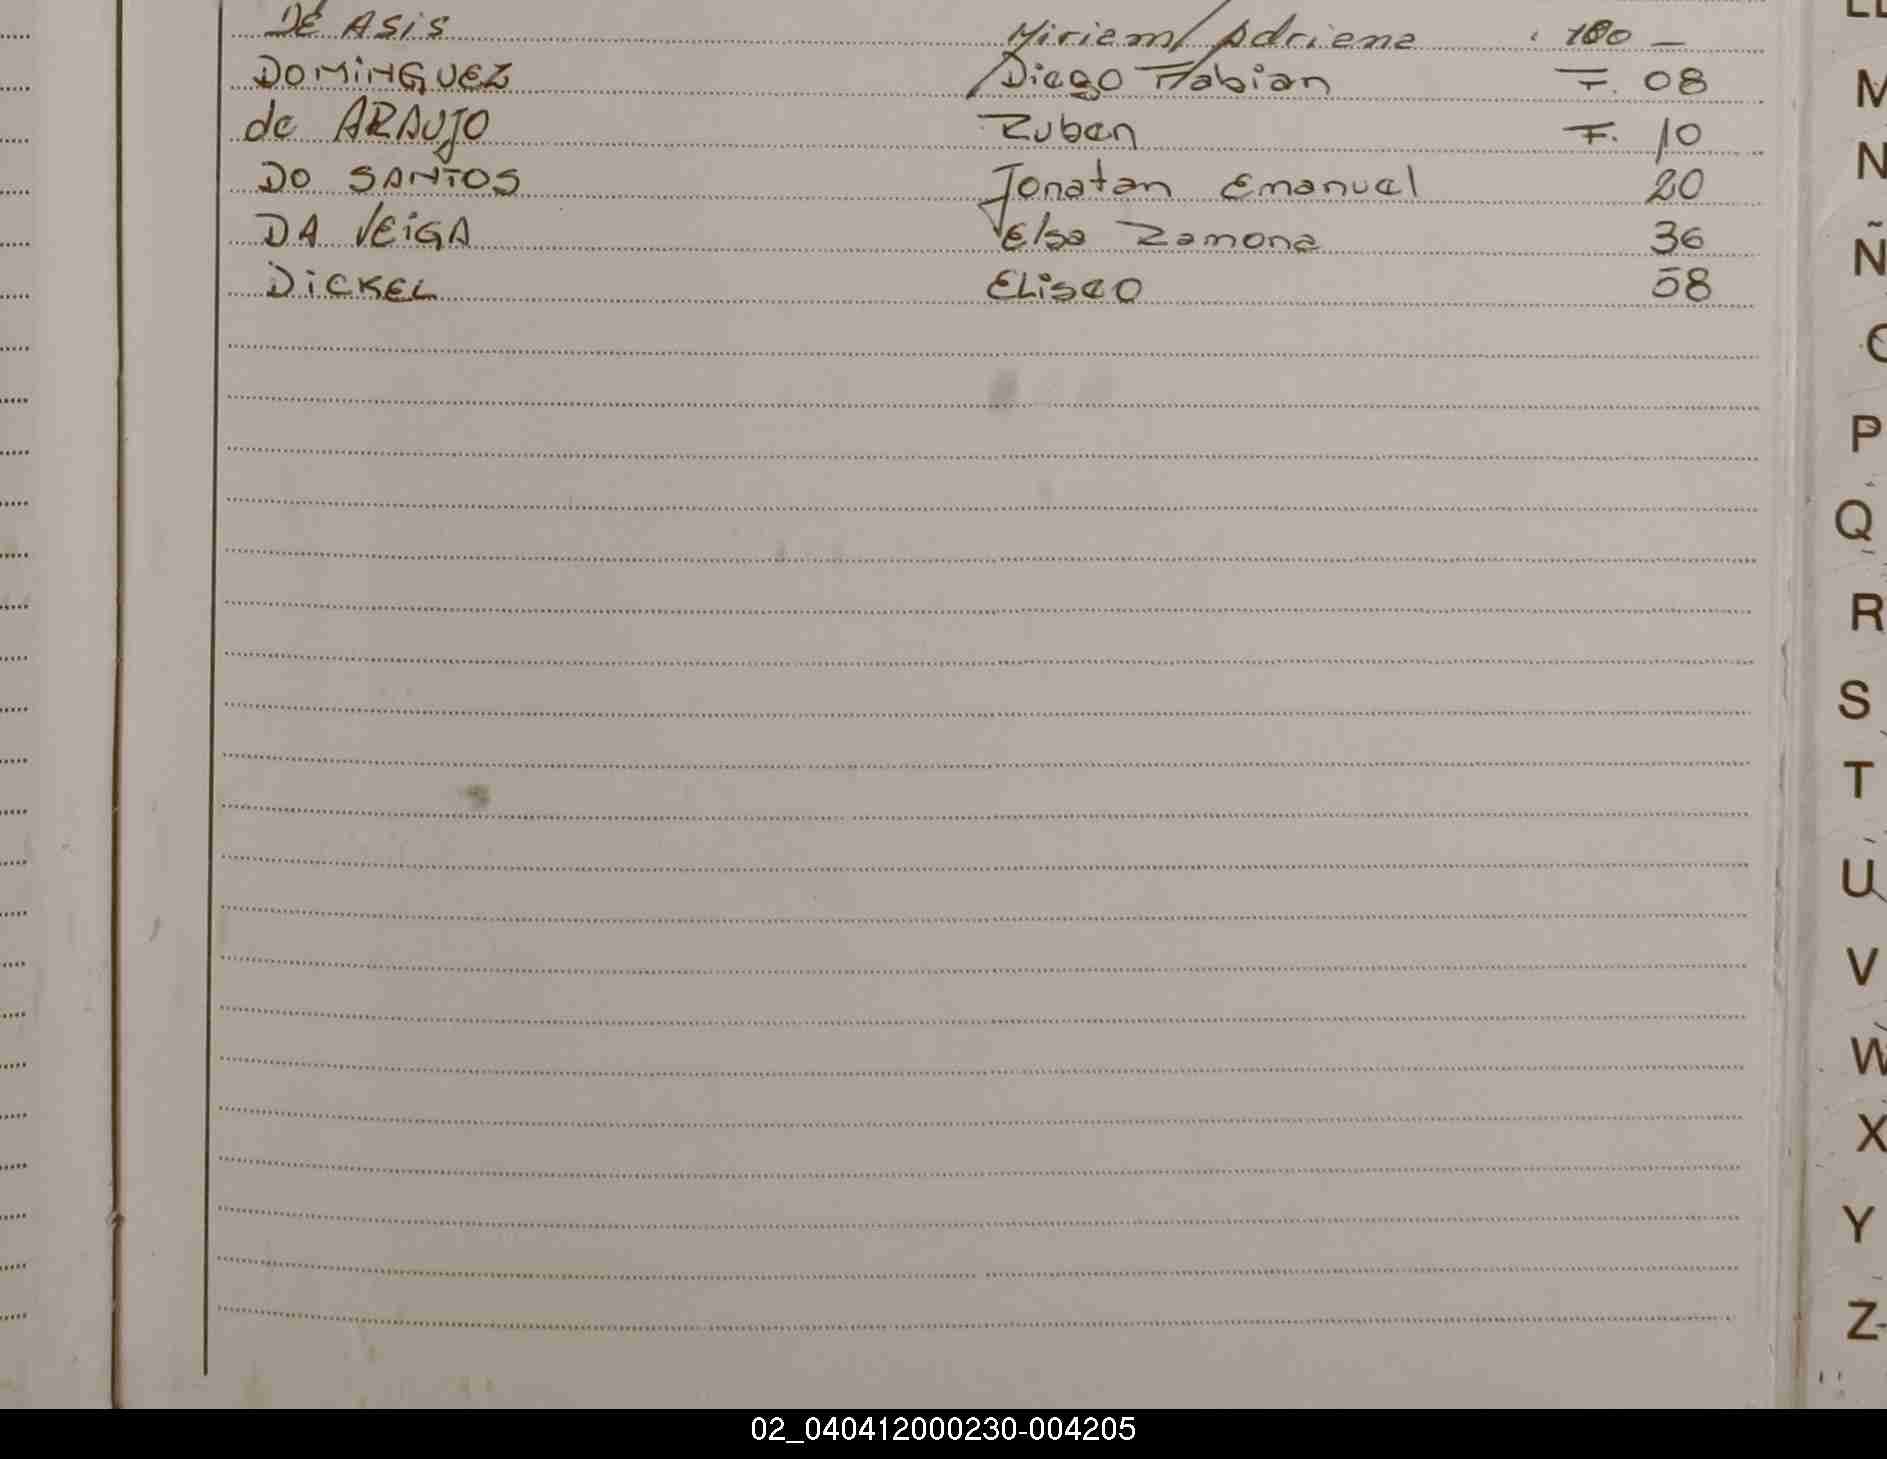 DE ASiS Miriam Adriana 100 –
DOMiNGUEZ Diego Fabian F. 08
de ARAUJO Ruben F. 10
DO SANTOS Jonatan Emanuel 20
DA VEiGA Elsa Ramona 36
DiCKEL ELiseo 58
M
N
Ñ
O
P
Q
R
S
T
U
V
W
X
Y
Z
02_040412000230-004205